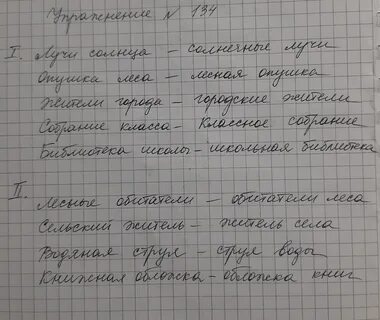 Упражнение № 134
I. Лучи солнца – солнечные лучи
Опушка леса – лесная опушка
Жители города – городские жители
Собрание класса – Классное собрание
Библиотека школы – школьная библиотека
II. Лесные обитатели – обитатели леса
Сельский житель – житель села
Водяная струя – струя воды
Книжная обложка – обложка книг